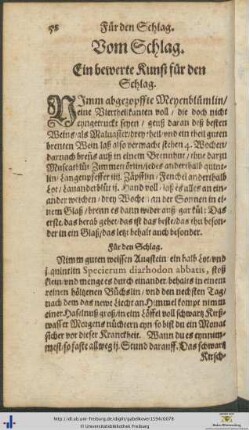 58 Für den Schlag.
Vom Schlag.
Ein bewerte Kunst für den
Schlag.
NImm abgezopffte Meyenblümlin/
eine Viertheilkanten voll / die doch nicht
eingetruckt seyen / geuß daran deß besten
Weins/als Maluasier/drey theil/vnd ein theil guten
brenten Wein laß also vermacht stehen 4. Wochen/
darnach brenn auß in einem Brennzeug/ thue darzu
Muscatblüt Zimmenrörin/jedes anderthalb quint-
lin/Langenpfeffer Zäpfflin/Fenchel anderthalb
Lot/Lauanderblüt Hand voll/ stoß es alles an ein-
ander weichen/drey Wochen an der Sonnen in ei-
nem Glaß/brenns es dann wider auß gar kül: Das
erste/das herab gehet/das ist das beste/das thu beson-
der in ein Glaß/das letzt behalt auch besonder.
Für den Schlag.
Nimm guten weissen Augstein ein halb Lot/vnd
j. quintlin Specierum diarhodon abbatis, stoß
klein/vnd mengs durch einander behalts in einem
reinen höltzenen Büchslin/ vnd den nechsten Tag/
nach dem das newe Liecht am Himmel kompt nimm
einer Haselnuß groß/in ein Löffel voll schwartz Kirß-
wasser Morgens nüchtern eyn so bist du ein Monat
sicher vor dieser Kranckheit. Wann du es eynnim-
mest/so faste allweg ij. Stund darauff. Das schwartz
Kirsch-
http://dl.ub.uni-freiburg.de/diglit/gabelkover1594/0078
© Universitätsbibliothek Freiburg